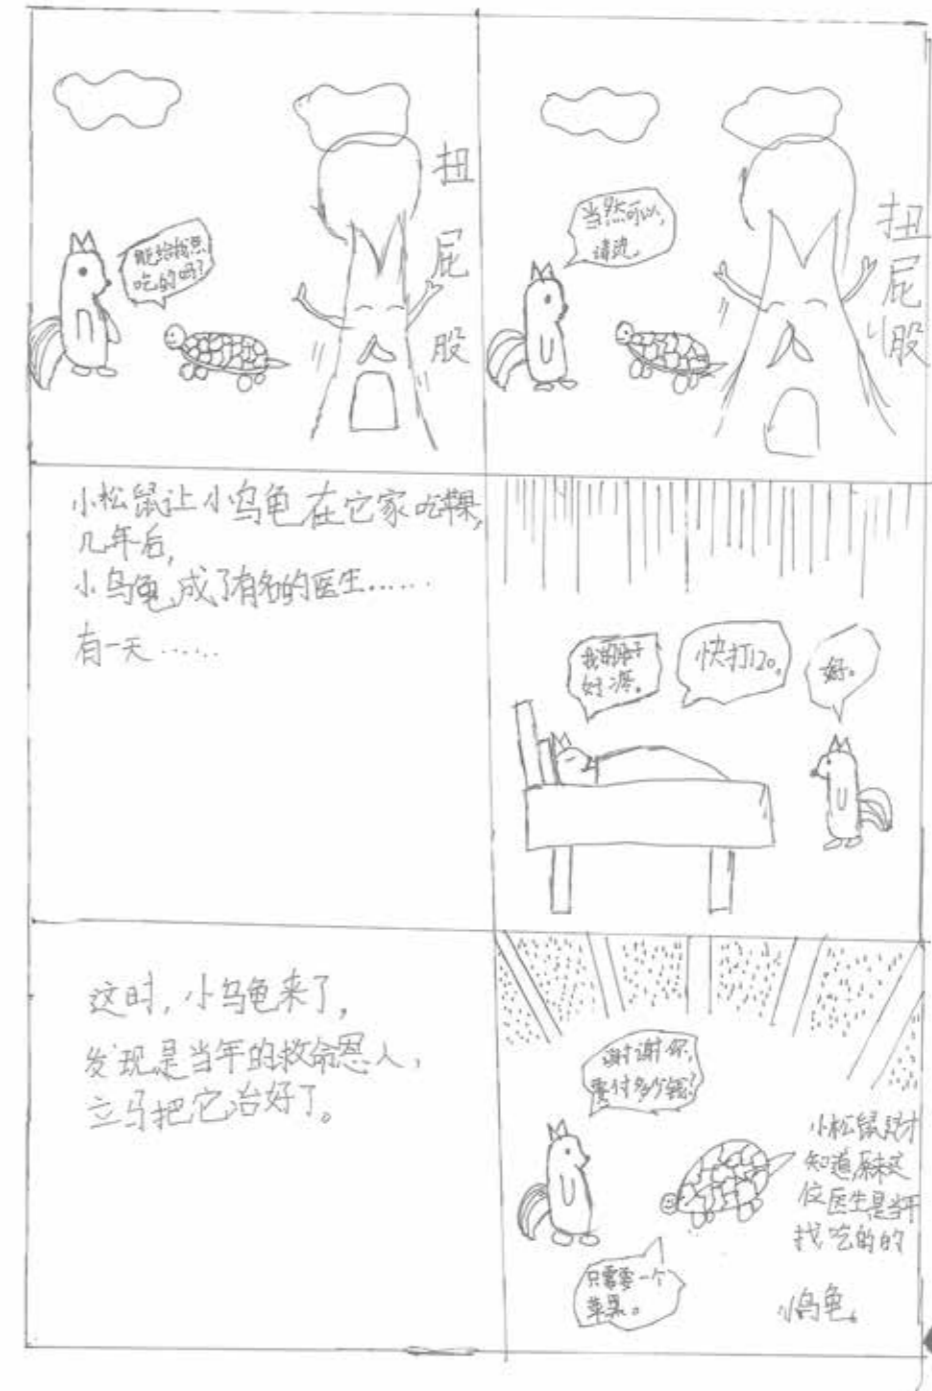 能给我点
吃的吗？
扭
屁
股
当然可以，
请进。
扭
屁
股
小松鼠让小乌龟在它家吃苹果，
几年后，
小乌龟成了有名的医生……
有一天……
我的肚子
好疼。
快打120。
好。
这时，小乌龟来了，
发现是当年的救命恩人，
立马把它治好了。
谢谢你，
要付多少钱？
只需要一个
苹果。
小松鼠这才
知道原来这
位医生是当年
找吃的的
小乌龟。